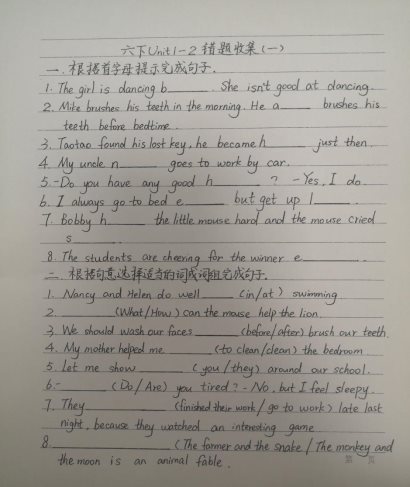 六下Unit1-2错题收集(一)
一.根据首字母提示完成句子.
1. The girl is dancing b____. She isn't good at dancing.
2. Mike brushes his teeth in the morning. He a____ brushes his
teeth before bedtime.
3. Taotao found his lost key, he became h____ just then.
4. My uncle n____ goes to work by car.
5. -Do you have any good h____? -Yes, I do.
6. I always go to bed e____ but get up l____.
7. Bobby h____ the little mouse hard and the mouse cried
s____.
8. The students are cheering for the winner e____.
二.根据句意,选择适当的词或词组完成句子.
1. Nancy and Helen do well ____ (in/at) swimming.
2. ____ (What/How) can the mouse help the lion.
3. We should wash our faces ____ (before/after) brush our teeth.
4. My mother helped me ____ (to clean/clean) the bedroom
5. Let me show ____ (you/they) around our school.
6.- ____ (Do/Are) you tired? - No, but I feel sleepy.
7. They ____ (finished their work/go to work) late last
night, because they watched an interesting game
8. ____ (The farmer and the snake/The monkey and
the moon is an animal fable.
第 页